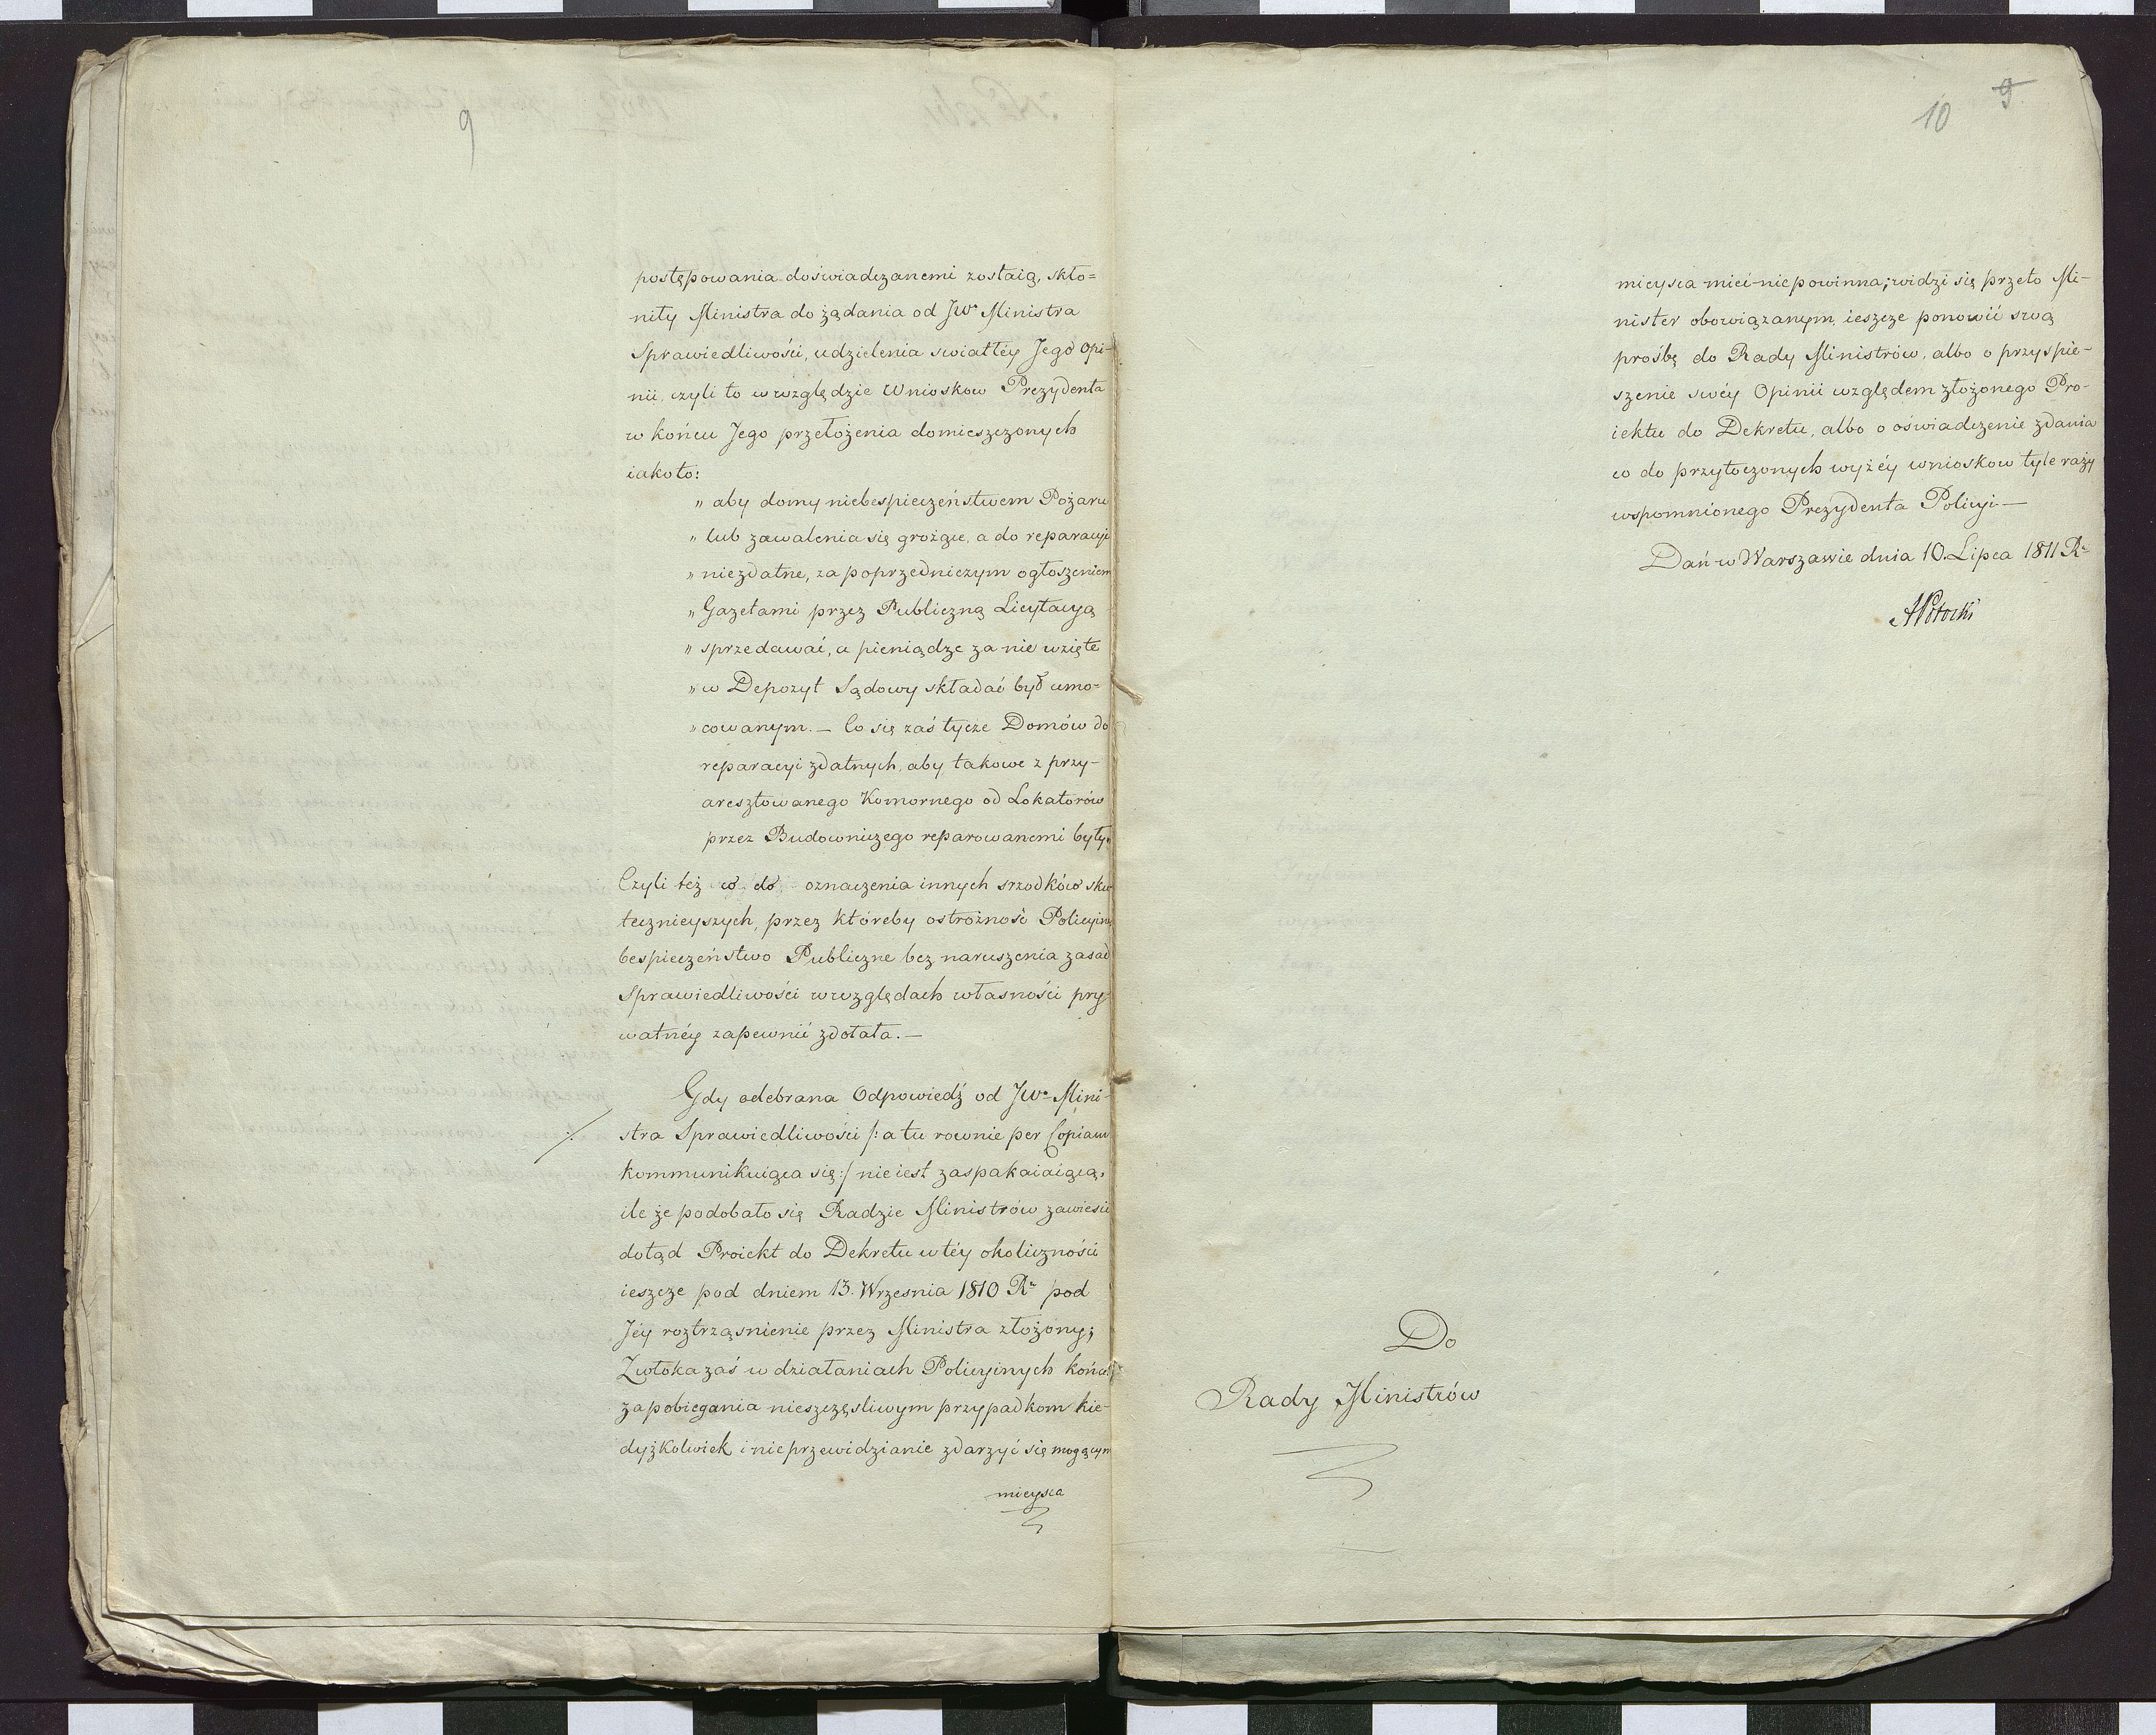 9
postępowania doświadczanemi zostaią, skło=
niły Ministra do żądania od JWo Ministra
Sprawiedliwości, udzielenia swiatłéy Jego Opi-
nii, czyli to w względzie Wnioskow Prezydenta
w końcu Jego przełożenia domieszczonych
iakoto:
„ aby domy niebespieczeństwem Pożaru
„ lub zawalenia się grożące, a do reparacyi
„ niezdatne, za poprzedniczym ogłoszeniem
„ Gazetami przez Publiczną Licytacyą
„ sprzedawać, a pieniądze za nie wzięte
„ w Depozyt Sądowy składać był umo-
„ cowanym. — Co się zaś tycze Domów do
reparacyi zdatnych, aby takowe z przy-
aresztowanego Komornego od Lokatorów
przez Budowniczego reparowanemi były.
Czyli też co do oznaczenia innych srzodków sku
tecznieyszych, przez któreby ostrożność Policyina
bespieczeństwo Publiczne bez naruszenia zasad
Sprawiedliwości w względach własności pry-
watnéy zapewnić zdołała. —
Gdy odebrana Odpowiedź od JWo Mini-
stra Sprawiedliwości /: a tu rownie per Copiam
kommunikuiąca się :/ nie iest zaspakaiaiącą,
ile że podobało się Radzie Ministrów zawiesić
dotąd Proiekt do Dekretu w téy okoliczności
ieszcze pod dniem 13. Wrzesnia 1810 Rr pod
Jéy roztrząsnienie przez Ministra złożony;
Zwłoka zaś w działaniach Policyinych końcem
zapobiegania nieszczęsliwym przypadkom kie-
dyżkolwiek i nieprzewidzianie zdarzyć się mogącym
mieysca
9
10
mieysca mieć niepowinna; widzi się przeto Mi-
nister obowiązanym ieszcze ponowić swą
prośbę do Rady Ministrów, albo o przyspie-
szenie swéy Opinii względem złożonego Pro-
iektu do Dekretu, albo o oświadczenie zdania
co do przytoczonych wyżéy wnioskow tyle razy
wspomnionego Prezydenta Policyi —
Dań w Warszawie dnia 10. Lipca 1811 Rr
APotocki
Do
Rady Ministrów